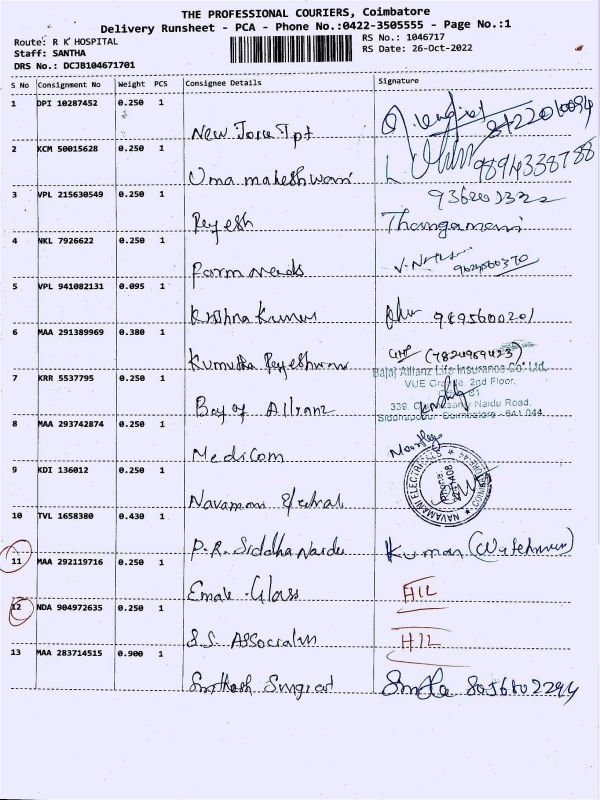 THE PROFESSIONAL COURIERS, Coimbatore
Delivery Runsheet - PCA - Phone No.:0422-3505555 - Page No.:1
Route: R K HOSPITAL
Staff: SANTHA
DRS No.: DCJB104671701
RS No.: 1046717
RS Date: 26-Oct-2022
S No Consignment No Weight PCS Consignee Details Signature
1 DPI 10287452 0.250 1
2 KCM 50015628 0.250 1
Uma maheshwari 9894338788
3 VPL 215630549 0.250 1
Thangamani
4 NKL 7926622 0.250 1
5 VPL 941082131 0.095 1
Krishna Kumar 9895600201
6 MAA 291389969 0.380 1
Kumutha (7824969423)
7 KRR 5537795 0.250 1
Bajaj Allianz Life Insurance Co. Ltd.
2nd Floor,
339, Naidu Road,
Siddhapudur Coimbatore - 641 044.
Bajaj Allianz
8 MAA 293742874 0.250 1
Medicom
9 KDI 136012 0.250 1
NAVAMANI ELECTRICALS
Navamani
10 TVL 1658380 0.430 1
P.R. Siddha Naidu Kumar (Watchman)
11 MAA 292119716 0.250 1
Glass
12 NDA 904972635 0.250 1
S.S. Associates
13 MAA 283714515 0.900 1
Santhosh Surgical 8056802294